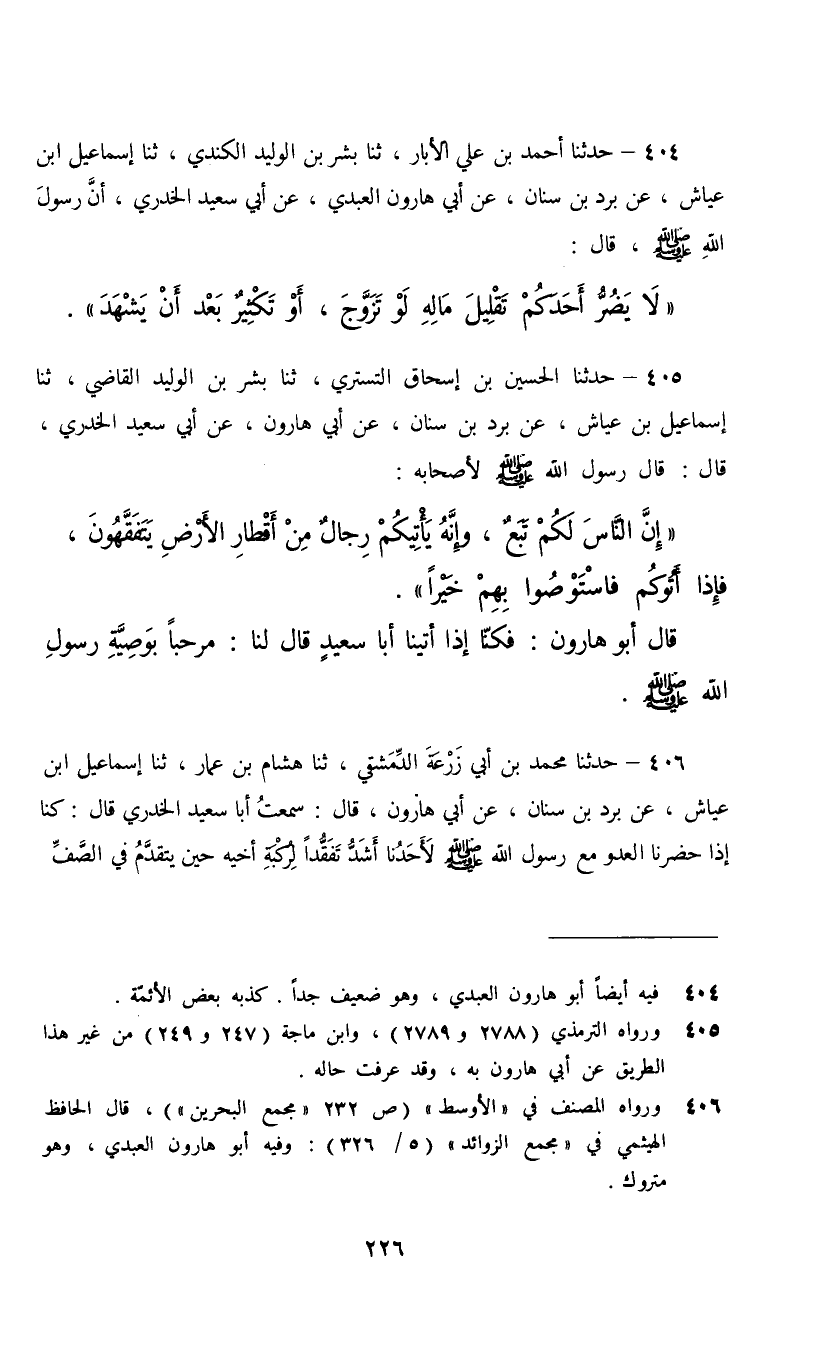 ٤٠٤ – حدثنا أحمد بن علي الأبار ، ثنا بشر بن الوليد الكندي ، ثنا إسماعيل ابن
عياش ، عن برد بن سنان ، عن أبي هارون العبدي ، عن أبي سعيد الخدري ، أنَّ رسولَ
اللهِ ﷺ ، قال :
« لَا يَضُرُّ أَحَدَكُمْ تَقْلِيلَ مَالِهِ لَوْ تَزَوَّجَ ، أَوْ تَكْثِيرٌ بَعْد أَنْ يَشْهَدَ» .
٤٠٥ – حدثنا الحسين بن إسحاق التستري ، ثنا بشر بن الوليد القاضي ، ثنا
إسماعيل بن عياش ، عن برد بن سنان ، عن أبي هارون ، عن أبي سعيد الخدري ،
قال : قال رسول الله ﷺ لأصحابه :
« إِنَّ النَّاسَ لَكُمْ تَبَعٌ ، وإِنَّهُ يَأْتِيكُمْ رِجالٌ مِنْ أَقْطارِ الأَرْضِ يَتَفَقَّهُونَ ،
فإِذا أَتَوكُم فاسْتَوْصُوا بِهِمْ خَيْراً» .
قال أبو هارون : فكنّا إذا أتينا أبا سعيدٍ قال لنا : مرحباً بوَصِيَّةِ رسولِ
الله ﷺ .
٤٠٦ – حدثنا محمد بن أبي زَرْعَةَ الدِّمَشقي ، ثنا هشام بن عمار ، ثنا إسماعيل ابن
عياش ، عن برد بن سنان ، عن أبي هارون ، قال : سمعتُ أبا سعيد الخدري قال : كنا
إذا حضرنا العدو مع رسول الله ﷺ لَأَحَدُنا أَشَدُّ تَفَقُّداً لِرُكْبَةِ أخيه حين يتقدَّمُ في الصَّفِّ
٤٠٤ فيه أيضاً أبو هارون العبدي ، وهو ضعيف جداً . كذبه بعض الأئمّة .
٤٠٥ ورواه الترمذي (٢٧٨٨ و ٢٧٨٩) ، وابن ماجة (٢٤٧ و ٢٤٩) من غير هذا
الطريق عن أبي هارون به ، وقد عرفت حاله .
٤٠٦ ورواه المصنف في «الأوسط» (ص ٢٣٢ «مجمع البحرين») ، قال الحافظ
الهيثمي في «مجمع الزوائد» (٥ / ٣٢٦) : وفيه أبو هارون العبدي ، وهو
متروك .
٢٢٦